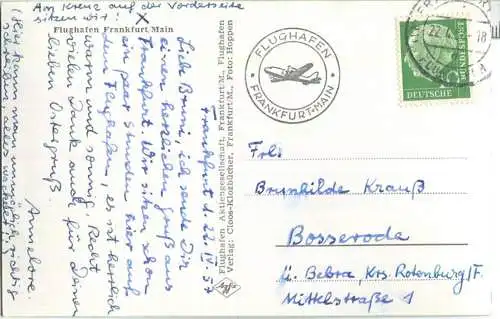 Am Kreuz auf der Vorderseite
sitzen wir! X
Flughafen Frankfurt/Main
Frankfurt, d. 22. IV. 57
Liebe Bruni, ich sende Dir
einen herzlichen Gruß aus
Frankfurt. Wir sitzen schon
ein paar Stunden hier auf
dem Flughafen, es ist herrlich
warm und sonnig. Recht
vielen Dank auch für Deinen
lieben Ostergruß.
Annelore.
(Hier kann man
alles
Flughafen Aktiengesellschaft, Frankfurt/M., Flughafen
Verlag: Cloos-Kiosbücher, Frankfurt/M., Foto: Hoppen
Agfa
FLUGHAFEN
FRANKFURT-MAIN
22.
-18
DEUTSCHE BUNDESPOST
Frl.
Brunhilde Krauß
Bosserode
ü. Bebra, Krs. Rotenburg/F.
Mittelstraße 1